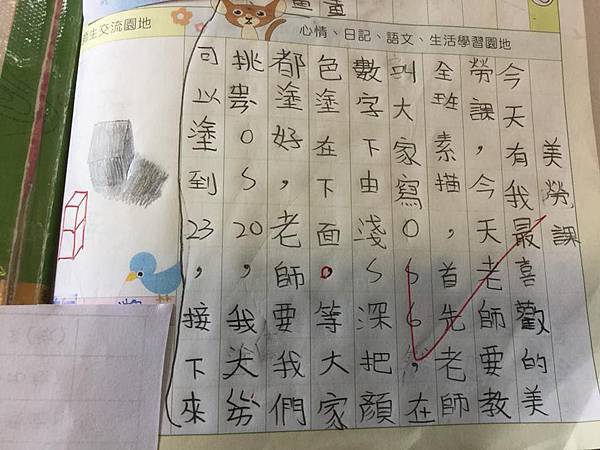 生交流園地
心情、日記、語文、生活學習園地
美勞課
今天有我最喜歡的美
勞課，今天老師要教
全班素描，首先老師
叫大家寫0~6，在
數字下由淺~深把顏
色塗在下面。等大家
都塗好，老師要我們
挑0~20，我大
可以塗到23，接下來